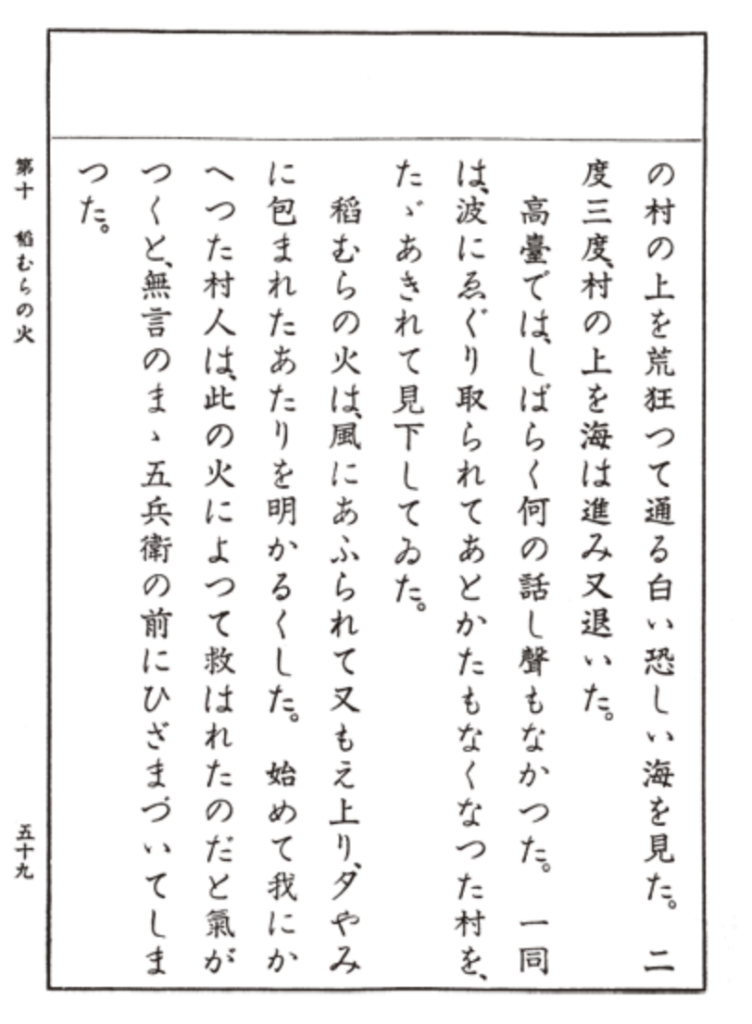 の村の上を荒狂つて通る白い恐しい海を見た。二
度三度、村の上を海は進み又退いた。
高臺では、しばらく何の話し聲もなかつた。一同
は、波にゑぐり取られてあとかたもなくなつた村を、
たゞあきれて見下してゐた。
稻むらの火は、風にあふられて又もえ上り、夕やみ
に包まれたあたりを明かるくした。始めて我にか
へつた村人は、此の火によつて救はれたのだと氣が
つくと、無言のまゝ五兵衛の前にひざまづいてしま
つた。
第十 稻むらの火
五十九